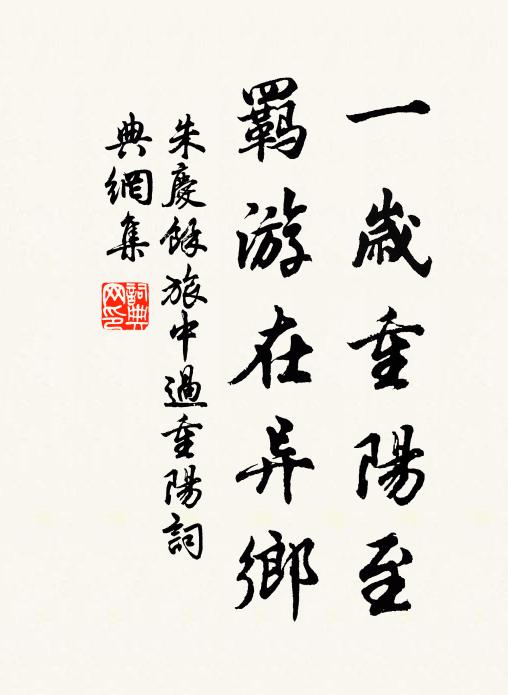 一歲重陽至
羇游在异鄉
朱慶餘旅中過重陽詞
典網集
詞典网印